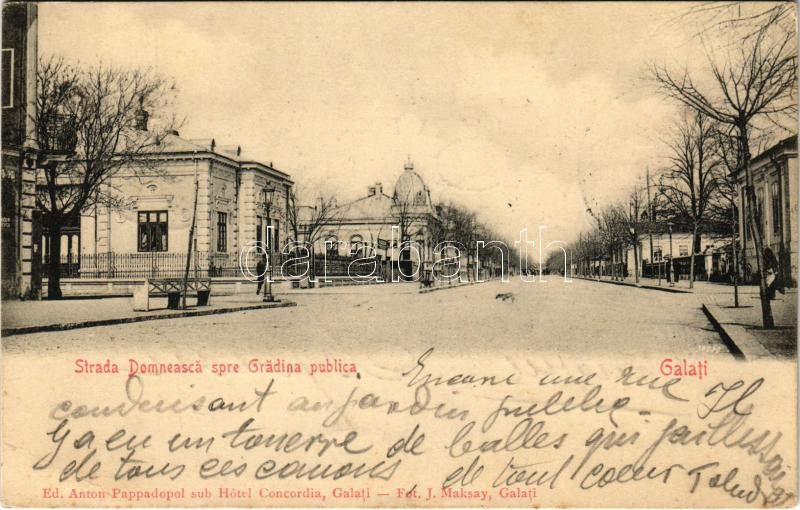 darabanth
Strada Domnească spre Grădina publica
Galați
Encore une rue
conduisant au jardin public. Il
Y a eu un tonnerre de balles qui
de tous ces canons de tout cœur
Ed. Anton Pappadopol sub Hôtel Concordia, Galați — Fot. J. Maksay, Galați